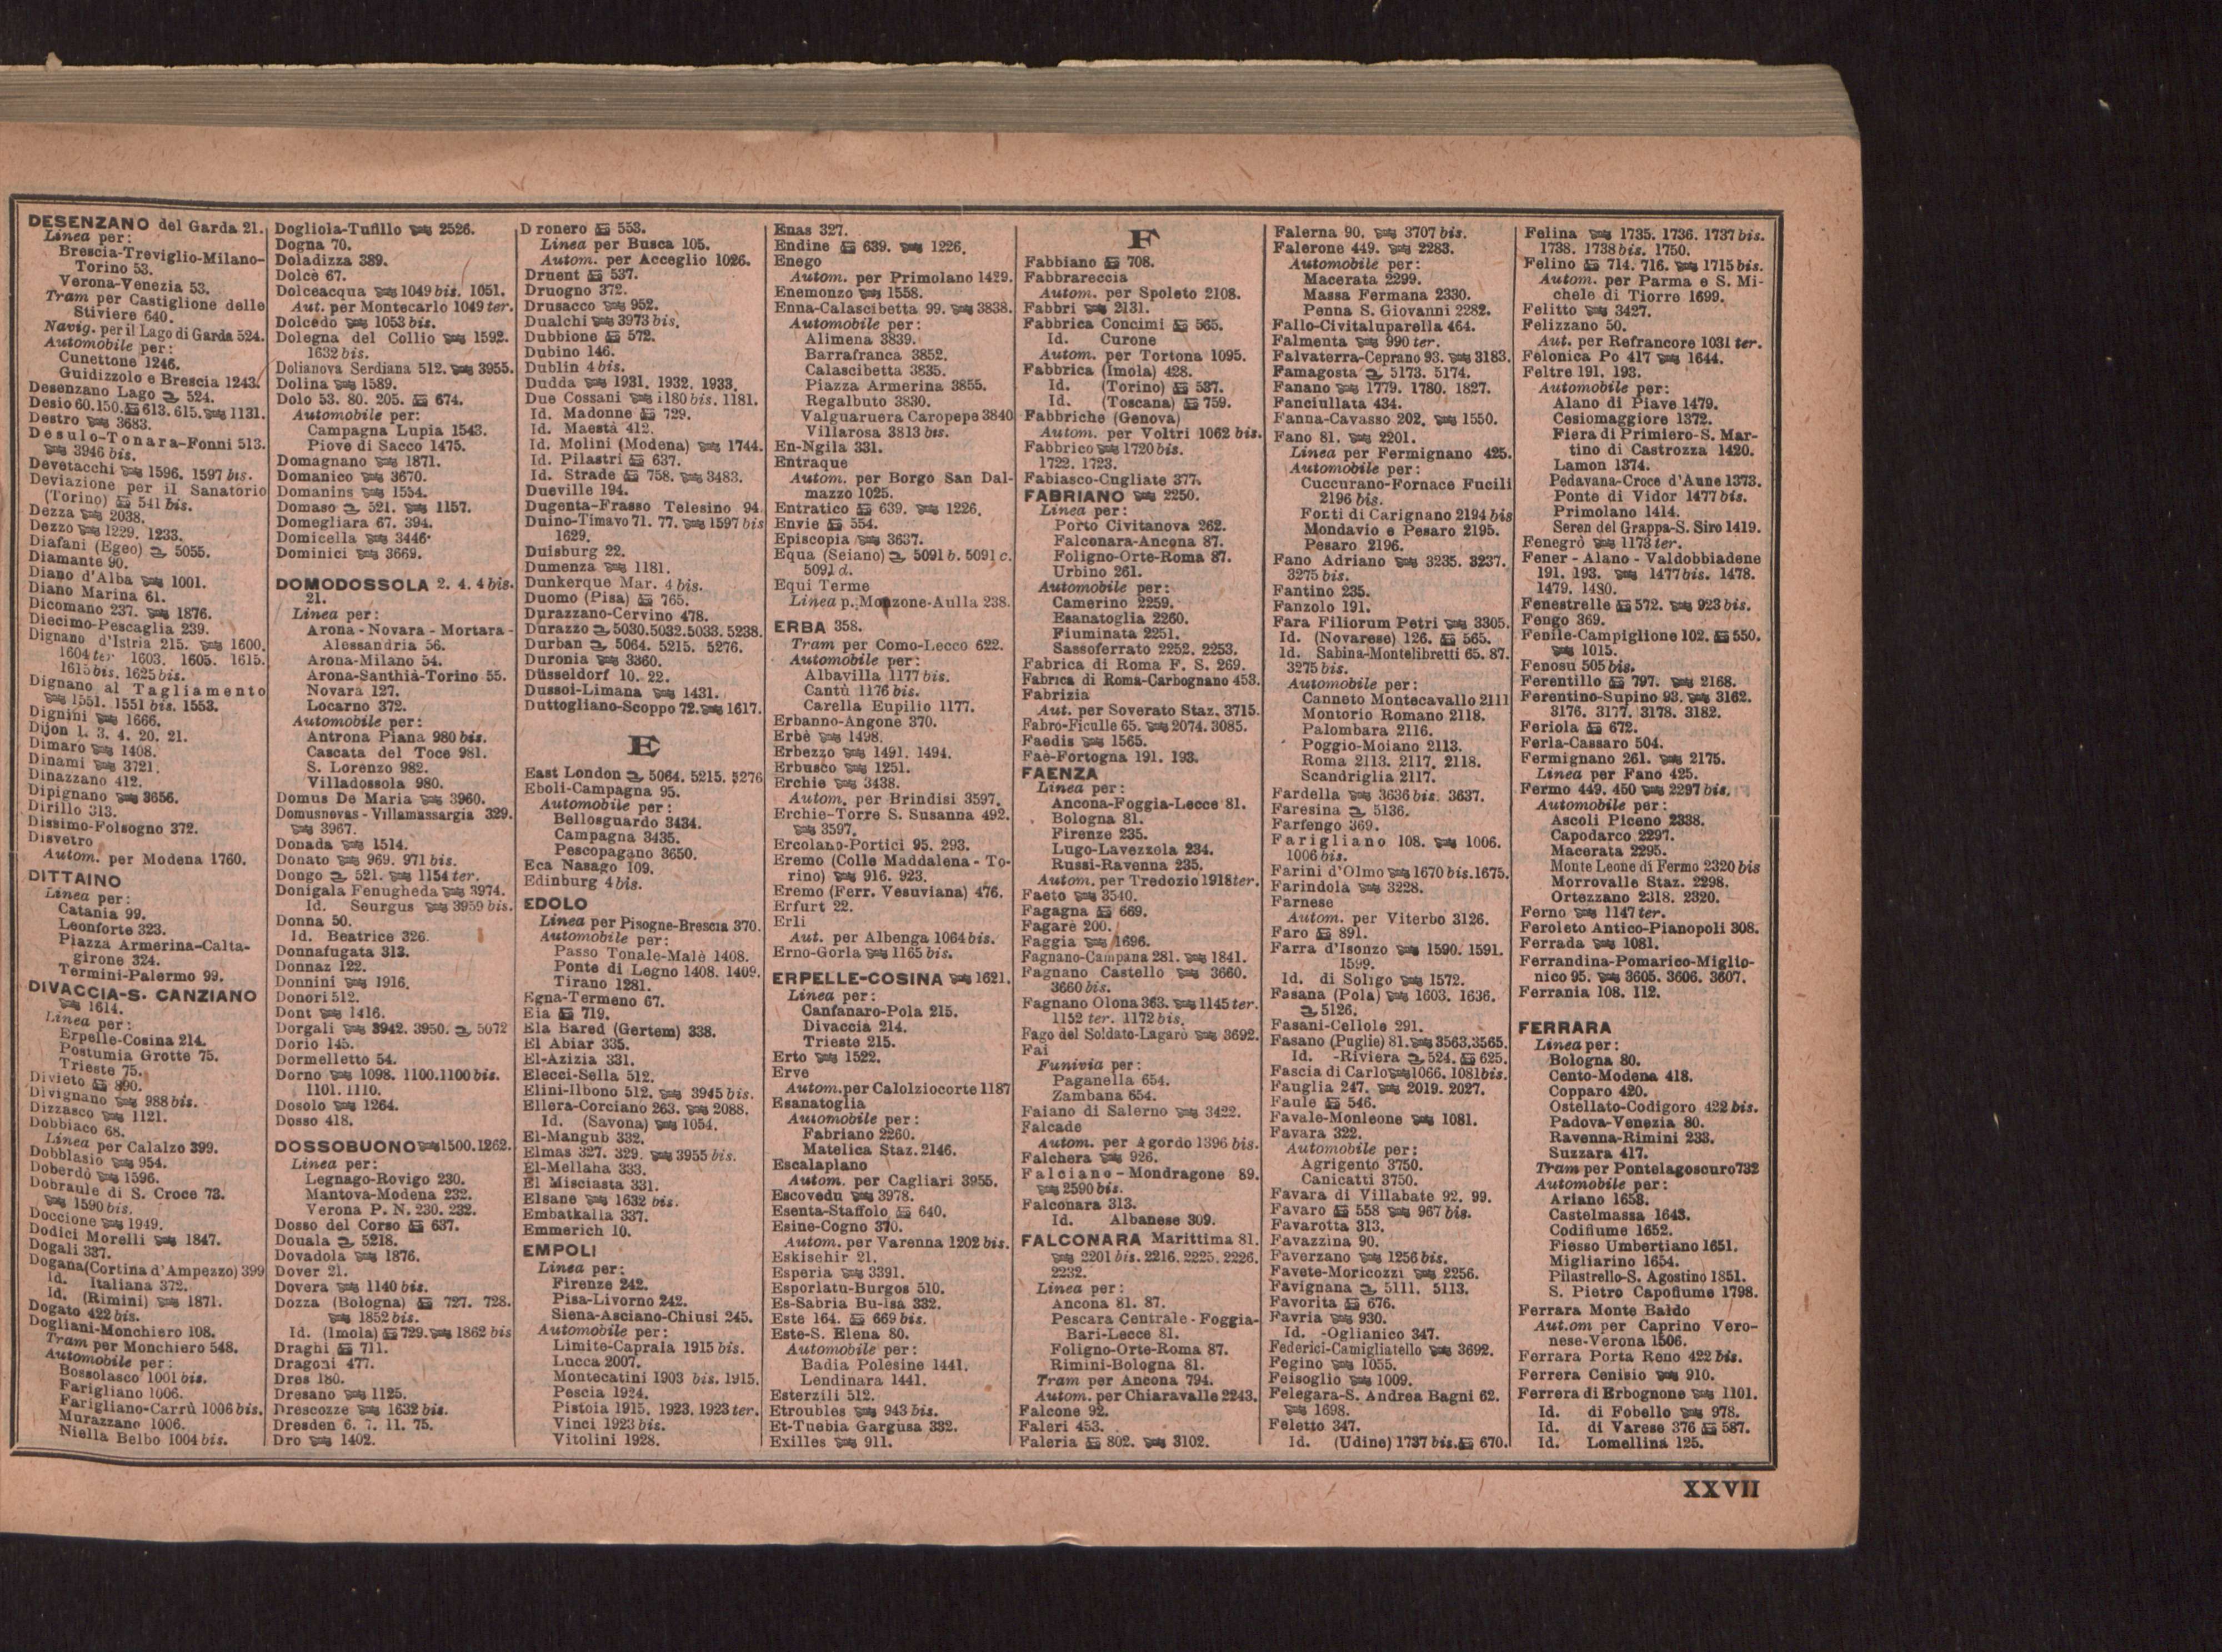 DESENZANO del Garda 21.
Linea per:
Brescia-Treviglio-Milano-
Torino 53.
Verona-Venezia 53.
Tram per Castiglione delle
Stiviere 640.
Navig. per il Lago di Garda 524.
Automobile per:
Cunettone 1246.
Guidizzolo e Brescia 1243.
Desenzano Lago 524.
Desio 60.150. 613. 615. 1131.
Destro 3683.
Desulo-Tonara-Fonni 513.
3946 bis.
Devetacchi 1596. 1597 bis.
Deviazione per il Sanatorio
(Torino) 541 bis.
Dezza 2038.
Dezzo 1229. 1233.
Diafani (Egeo) 5055.
Diamante 90.
Diano d'Alba 1001.
Diano Marina 61.
Dicomano 237. 1876.
Diecimo-Pescaglia 239.
Dignano d'Istria 215. 1600.
1604 ter 1603. 1605. 1615.
1615 bis. 1625 bis.
Dignano al Tagliamento
1551. 1551 bis. 1553.
Dignini 1666.
Dijon 1. 3. 4. 20. 21.
Dimaro 1408.
Dinami 3721.
Dinazzano 412.
Dipignano 3656.
Dirillo 313.
Dissimo-Folsogno 372.
Disvetro
Autom. per Modena 1760.
DITTAINO
Linea per:
Catania 99.
Leonforte 323.
Piazza Armerina-Calta-
girone 324.
Termini-Palermo 99.
DIVACCIA-S. CANZIANO
1614.
Linea per:
Erpelle-Cosina 214.
Postumia Grotte 75.
Trieste 75.
Divieto 890.
Divignano 988 bis.
Dizzasco 1121.
Dobbiaco 68.
Linea per Calalzo 399.
Dobblasio 954.
Doberdò 1596.
Dobraule di S. Croce 73.
1590 bis.
Doccione 1949.
Dodici Morelli 1847.
Dogali 337.
Dogana (Cortina d'Ampezzo) 399
Id. Italiana 372.
Id. (Rimini) 1871.
Dogato 422 bis.
Dogliani-Monchiero 108.
Tram per Monchiero 548.
Automobile per:
Bossolasco 1001 bis.
Farigliano 1006.
Farigliano-Carrù 1006 bis.
Murazzano 1006.
Niella Belbo 1004 bis.
Dogliola-Tufillo 2526.
Dogna 70.
Doladizza 389.
Dolcè 67.
Dolceacqua 1049 bis. 1051.
Aut. per Montecarlo 1049 ter.
Dolcedo 1053 bis.
Dolegna del Collio 1592.
1632 bis.
Dolianova Serdiana 512. 3955.
Dolina 1589.
Dolo 53. 80. 205. 674.
Automobile per:
Campagna Lupia 1543.
Piove di Sacco 1475.
Domagnano 1871.
Domanico 3670.
Domanins 1554.
Domaso 521. 1157.
Domegliara 67. 394.
Domicella 3446.
Dominici 3669.
DOMODOSSOLA 2. 4. 4 bis.
21.
Linea per:
Arona-Novara-Mortara-
Alessandria 56.
Arona-Milano 54.
Arona-Santhià-Torino 55.
Novara 127.
Locarno 372.
Automobile per:
Antrona Piana 980 bis.
Cascata del Toce 981.
S. Lorenzo 982.
Villadossola 980.
Domus De Maria 3960.
Domusnovas-Villamassargia 329.
3967.
Donada 1514.
Donato 969. 971 bis.
Dongo 521. 1154 ter.
Donigala Fenugheda 3974.
Id. Seurgus 3959 bis.
Donna 50.
Id. Beatrice 326.
Donnafugata 313.
Donnaz 122.
Donnini 1916.
Donori 512.
Dont 1416.
Dorgali 3942. 3950. 5072
Dorio 145.
Dormelletto 54.
Dorno 1098. 1100. 1100 bis.
1101. 1110.
Dosolo 1264.
Dosso 418.
DOSSOBUONO 1500.1262.
Linea per:
Legnago-Rovigo 230.
Mantova-Modena 232.
Verona P. N. 230. 232.
Dosso del Corso 637.
Douala 5218.
Dovadola 1876.
Dover 21.
Dovera 1140 bis.
Dozza (Bologna) 727. 728.
1852 bis.
Id. (Imola) 729. 1862 bis
Draghi 711.
Dragoni 477.
Dres 180.
Dresano 1125.
Drescozze 1632 bis.
Dresden 6. 7. 11. 75.
Dro 1402.
Dronero 553.
Linea per Busca 105.
Autom. per Acceglio 1026.
Druent 537.
Druogno 372.
Drusacco 952.
Dualchi 3973 bis.
Dubbione 572.
Dubino 146.
Dublin 4 bis.
Dudda 1931. 1932. 1933.
Due Cossani 1180 bis. 1181.
Id. Madonne 729.
Id. Maestà 412.
Id. Molini (Modena) 1744.
Id. Pilastri 637.
Id. Strade 758. 3483.
Dueville 194.
Dugenta-Frasso Telesino 94.
Duino-Timavo 71. 77. 1597 bis
1629.
Duisburg 22.
Dumenza 1181.
Dunkerque Mar. 4 bis.
Duomo (Pisa) 765.
Durazzano-Cervino 478.
Durazzo 5030.5032.5033. 5238.
Durban 5064. 5215. 5276.
Duronia 3360.
Düsseldorf 10. 22.
Dussoi-Limana 1431.
Duttogliano-Scoppo 72. 1617.
E
East London 5064. 5215. 5276
Eboli-Campagna 95.
Automobile per:
Bellosguardo 3434.
Campagna 3435.
Pescopagano 3650.
Eca Nasago 109.
Edinburg 4 bis.
EDOLO
Linea per Pisogne-Brescia 370.
Automobile per:
Passo Tonale-Malè 1408.
Ponte di Legno 1408. 1409.
Tirano 1281.
Egna-Termeno 67.
Eia 719.
Ela Bared (Gertem) 338.
El Abiar 335.
El-Azizia 331.
Elecci-Sella 512.
Elini-Ilbono 512. 3945 bis.
Ellera-Corciano 263. 2088.
Id. (Savona) 1054.
El-Mangub 332.
Elmas 327. 329. 3955 bis.
El-Mellaha 333.
El Misciasta 331.
Elsane 1632 bis.
Embatkalla 337.
Emmerich 10.
EMPOLI
Linea per:
Firenze 242.
Pisa-Livorno 242.
Siena-Asciano-Chiusi 245.
Automobile per:
Limite-Capraia 1915 bis.
Lucca 2007.
Montecatini 1903 bis. 1915.
Pescia 1924.
Pistoia 1915. 1923. 1923 ter.
Vinci 1923 bis.
Vitolini 1928.
Enas 327.
Endine 639. 1226.
Enego
Autom. per Primolano 1429.
Enemonzo 1558.
Enna-Calascibetta 99. 3838.
Automobile per:
Alimena 3839.
Barrafranca 3852.
Calascibetta 3835.
Piazza Armerina 3855.
Regalbuto 3830.
Valguarnera Caropepe 3840
Villarosa 3813 bis.
En-Ngila 331.
Entraque
Autom. per Borgo San Dal-
mazzo 1025.
Entratico 639. 1226.
Envie 554.
Episcopia 3637.
Equa (Seiano) 5091 b. 5091 c.
5091 d.
Equi Terme
Linea p. Monzone-Aulla 238.
ERBA 358.
Tram per Como-Lecco 622.
Automobile per:
Albavilla 1177 bis.
Cantù 1176 bis.
Carella Eupilio 1177.
Erbanno-Angone 370.
Erbè 1498.
Erbezzo 1491. 1494.
Erbusco 1251.
Erchie 3438.
Autom. per Brindisi 3597.
Erchie-Torre S. Susanna 492.
3597.
Ercolano-Portici 95. 293.
Eremo (Colle Maddalena - To-
rino) 916. 923.
Eremo (Ferr. Vesuviana) 476.
Erfurt 22.
Erli
Aut. per Albenga 1064 bis.
Erno-Gorla 1165 bis.
ERPELLE-COSINA 1621.
Linea per:
Canfanaro-Pola 215.
Divaccia 214.
Trieste 215.
Erto 1522.
Erve
Autom. per Calolziocorte 1187
Esanatoglia
Automobile per:
Fabriano 2260.
Matelica Staz. 2146.
Escalaplano
Autom. per Cagliari 3955.
Escovedu 3978.
Esenta-Staffolo 640.
Esine-Cogno 370.
Autom. per Varenna 1202 bis.
Eskisehir 21.
Esperia 3391.
Esporlatu-Burgos 510.
Es-Sabria Bu-Isa 332.
Este 164. 669 bis.
Este-S. Elena 80.
Automobile per:
Badia Polesine 1441.
Lendinara 1441.
Esterzili 512.
Etroubles 943 bis.
Et-Tuebia Gargusa 332.
Exilles 911.
F
Fabbiano 708.
Fabbrareccia
Autom. per Spoleto 2108.
Fabbri 2131.
Fabbrica Concimi 565.
Id. Curone
Autom. per Tortona 1095.
Fabbrica (Imola) 428.
Id. (Torino) 537.
Id. (Toscana) 759.
Fabbriche (Genova)
Autom. per Voltri 1062 bis.
Fabbrico 1720 bis.
1722. 1723.
Fabiasco-Cugliate 377.
FABRIANO 2250.
Linea per:
Porto Civitanova 262.
Falconara-Ancona 87.
Foligno-Orte-Roma 87.
Urbino 261.
Automobile per:
Camerino 2259.
Esanatoglia 2260.
Fiuminata 2251.
Sassoferrato 2252. 2253.
Fabrica di Roma F. S. 269.
Fabrica di Roma-Carbognano 453.
Fabrizia
Aut. per Soverato Staz. 3715.
Fabro-Ficulle 65. 2074. 3085.
Faedis 1565.
Faè-Fortogna 191. 193.
FAENZA
Linea per:
Ancona-Foggia-Lecce 81.
Bologna 81.
Firenze 235.
Lugo-Lavezzola 234.
Russi-Ravenna 235.
Autom. per Tredozio 1918 ter.
Faeto 3540.
Fagagna 669.
Fagarè 200.
Faggia 1696.
Fagnano-Campana 281. 1841.
Fagnano Castello 3660.
3660 bis.
Fagnano Olona 363. 1145 ter.
1152 ter. 1172 bis.
Fago del Soldato-Lagarò 3692.
Fai
Funivia per:
Paganella 654.
Zambana 654.
Faiano di Salerno 3422.
Falcade
Autom. per Agordo 1396 bis.
Falchera 926.
Falciano-Mondragone 89.
2590 bis.
Falconara 313.
Id. Albanese 309.
FALCONARA Marittima 81.
2201 bis. 2216. 2225. 2226.
2232.
Linea per:
Ancona 81. 87.
Pescara Centrale-Foggia-
Bari-Lecce 81.
Foligno-Orte-Roma 87.
Rimini-Bologna 81.
Tram per Ancona 794.
Autom. per Chiaravalle 2243.
Falcone 92.
Faleri 453.
Faleria 802. 3102.
Falerna 90. 3707 bis.
Falerone 449. 2283.
Automobile per:
Macerata 2299.
Massa Fermana 2330.
Penna S. Giovanni 2282.
Fallo-Civitaluparella 464.
Falmenta 990 ter.
Falvaterra-Ceprano 93. 3183.
Famagosta 5173. 5174.
Fanano 1779. 1780. 1827.
Fanciullata 434.
Fanna-Cavasso 202. 1550.
Fano 81. 2201.
Linea per Fermignano 425.
Automobile per:
Cuccurano-Fornace Fucili
2196 bis.
Fonti di Carignano 2194 bis
Mondavio e Pesaro 2195.
Pesaro 2196.
Fano Adriano 3235. 3237.
3275 bis.
Fantino 235.
Fanzolo 191.
Fara Filiorum Petri 3305.
Id. (Novarese) 126. 565.
Id. Sabina-Montelibretti 65. 87.
3275 bis.
Automobile per:
Canneto Montecavallo 2111
Montorio Romano 2118.
Palombara 2116.
Poggio-Moiano 2113.
Roma 2113. 2117. 2118.
Scandriglia 2117.
Fardella 3636 bis. 3637.
Faresina 5136.
Farfengo 369.
Farigliano 108. 1006.
1006 bis.
Farini d'Olmo 1670 bis. 1675.
Farindola 3228.
Farnese
Autom. per Viterbo 3126.
Faro 891.
Farra d'Isonzo 1590. 1591.
1599.
Id. di Soligo 1572.
Fasana (Pola) 1603. 1636.
5126.
Fasani-Cellole 291.
Fasano (Puglie) 81. 3563.3565.
Id. -Riviera 524. 625.
Fascia di Carlo 1066. 1081 bis.
Fauglia 247. 2019. 2027.
Faule 546.
Favale-Monleone 1081.
Favara 322.
Automobile per:
Agrigento 3750.
Canicatti 3750.
Favara di Villabate 92. 99.
Favaro 558 967 bis.
Favarotta 313.
Favazzina 90.
Faverzano 1256 bis.
Favete-Moricozzi 2256.
Favignana 5111. 5113.
Favorita 676.
Favria 930.
Id. -Oglianico 347.
Federici-Camigliatello 3692.
Fegino 1055.
Feisoglio 1009.
Felegara-S. Andrea Bagni 62.
1698.
Feletto 347.
Id. (Udine) 1737 bis. 670.
Felina 1735. 1736. 1737 bis.
1738. 1738 bis. 1750.
Felino 714. 716. 1715 bis.
Autom. per Parma e S. Mi-
chele di Tiorre 1699.
Felitto 3427.
Felizzano 50.
Aut. per Refrancore 1031 ter.
Felonica Po 417 1644.
Feltre 191. 193.
Automobile per:
Alano di Piave 1479.
Cesiomaggiore 1372.
Fiera di Primiero-S. Mar-
tino di Castrozza 1420.
Lamon 1374.
Pedavana-Croce d'Aune 1373.
Ponte di Vidor 1477 bis.
Primolano 1414.
Seren del Grappa-S. Siro 1419.
Fenegrò 1173 ter.
Fener-Alano-Valdobbiadene
191. 193. 1477 bis. 1478.
1479. 1480.
Fenestrelle 572. 923 bis.
Fengo 369.
Fenile-Campiglione 102. 550.
1015.
Fenosu 505 bis.
Ferentillo 797. 2168.
Ferentino-Supino 93. 3162.
3176. 3177. 3178. 3182.
Feriola 672.
Ferla-Cassaro 504.
Fermignano 261. 2175.
Linea per Fano 425.
Fermo 449. 450 2297 bis.
Automobile per:
Ascoli Piceno 2338.
Capodarco 2297.
Macerata 2295.
Monte Leone di Fermo 2320 bis
Morrovalle Staz. 2298.
Ortezzano 2318. 2320.
Ferno 1147 ter.
Feroleto Antico-Pianopoli 308.
Ferrada 1081.
Ferrandina-Pomarico-Miglio-
nico 95. 3605. 3606. 3607.
Ferrania 108. 112.
FERRARA
Linea per:
Bologna 80.
Cento-Modena 418.
Copparo 420.
Ostellato-Codigoro 422 bis.
Padova-Venezia 80.
Ravenna-Rimini 233.
Suzzara 417.
Tram per Pontelagoscuro 732
Automobile per:
Ariano 1658.
Castelmassa 1643.
Codifiume 1652.
Fiesso Umbertiano 1651.
Migliarino 1654.
Pilastrello-S. Agostino 1851.
S. Pietro Capofiume 1798.
Ferrara Monte Baldo
Aut.om per Caprino Vero-
nese-Verona 1506.
Ferrara Porta Reno 422 bis.
Ferrera Cenisio 910.
Ferrera di Erbognone 1101.
Id. di Fobello 978.
Id. di Varese 376 587.
Id. Lomellina 125.
XXVII